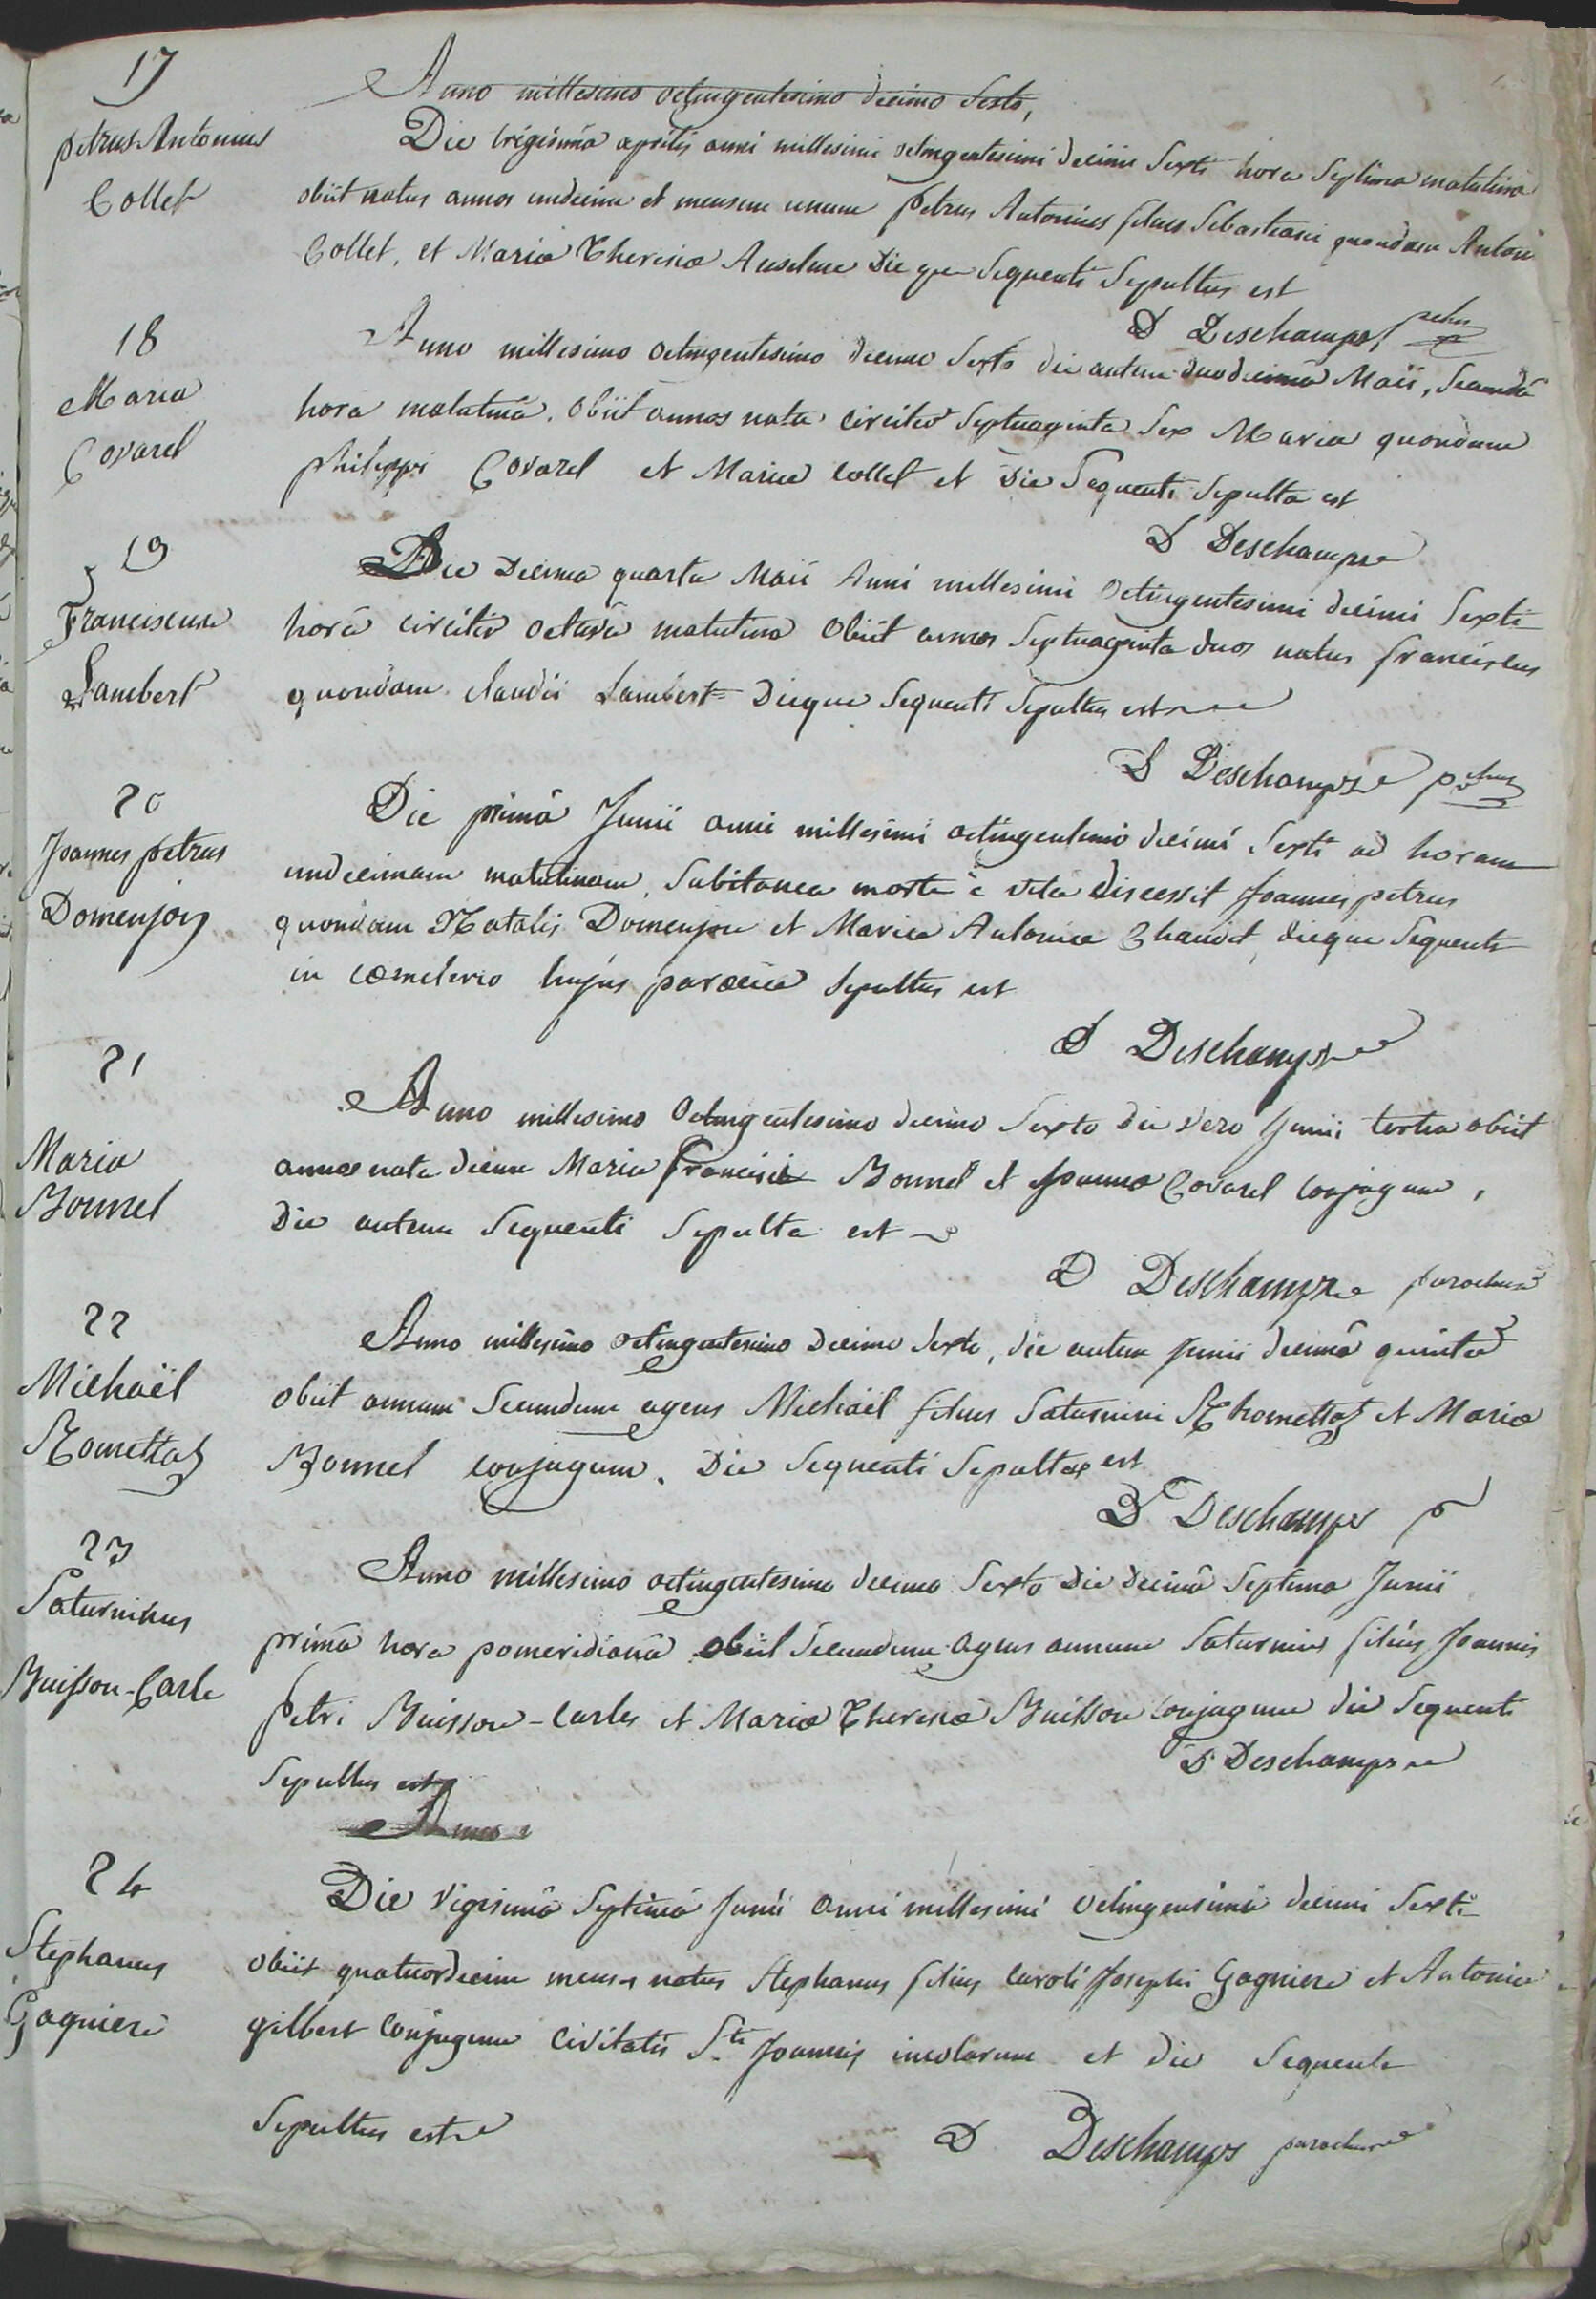 17
petrus Antonius
Collet
Anno millesimo octingentesimo decimo Sexto,
Die trigesimâ aprilis anni millesimi octingentesimi decimi Sexti hora Septima matutina
obiit natus annos undecim et mensem unum Petrus Antonius filius Sebastiani quondam Antoni
Collet, et Maria Theresia Anselme die que Sequenti Sepultus est
D Deschamps, pchus
18
Maria
Covarel
Anno millesimo octingentesimo decimo Sexto die autem duodecimâ Maii, Secundâ
hora matutinâ, obiit annos nata circiter Septuaginta Sex Maria quondam
philippi Covarel et Maria Collet et die Sequenti Sepulta est
D Deschamps
19
Franciscus
Lambert
Die Decima quarta Maii Anni millesimi octingentesimi decimi Sexti
horâ circiter octavâ matutina obiit annos Septuaginta duos natus franciscus
quondam Claudii Lambert Dieque Sequenti Sepultus est
D Deschamps pchus
20
Joannes petrus
Domenjon
Die primâ Junii anni millesimi octingentesimi decimi Sexti ad horam
undecimam matutinam, Subitanea morte è vita discessit Joannes petrus
quondam Natalis Domenjon et Maria Antonia Chaudet, dieque Sequenti
in cœmeterio hujus paroecia Sepultus est
D Deschamps
21
Maria
Bonnel
Anno millesimo octingentesimo decimo Sexto die vero Junii tertia obiit
annos nata decem Maria francisci Bonnel et Joanna Covarel conjugum,
Die autem Sequenti Sepulta est
D Deschamps parochus
22
Michaël
Romettaz
Anno millesimo octingentesimo Decimo Sexto, die autem Junii decimâ quinta
obiit annum Secundum agens Michaël filius Saturnini Rhomettaz et Maria
Bonnel conjugum. Die Sequenti Sepultus est
D Deschamps p
23
Saturninus
Buisson-Carle
Anno millesimo octingentesimo decimo Sexto Die Decimâ Septima Junii
primâ hora pomeridianâ obiit Secundum agens annum Saturninus filius Joannis
Petri Buisson-Carles et Maria Theresia Buisson conjugum die Sequenti
Sepultus est
D Deschamps
Anno
24
Stephanus
Gagniere
Die vigesimâ Septimâ Junii anni millesimi octingensimi decimi Sexti
obiit quatuordecim menses natus Stephanus filius Caroli Josephi Gagniere et Antonia
gilbert Conjugum Civitatis Sti Joannis incolarum et die Sequente
Sepultus est
D Deschamps parochus